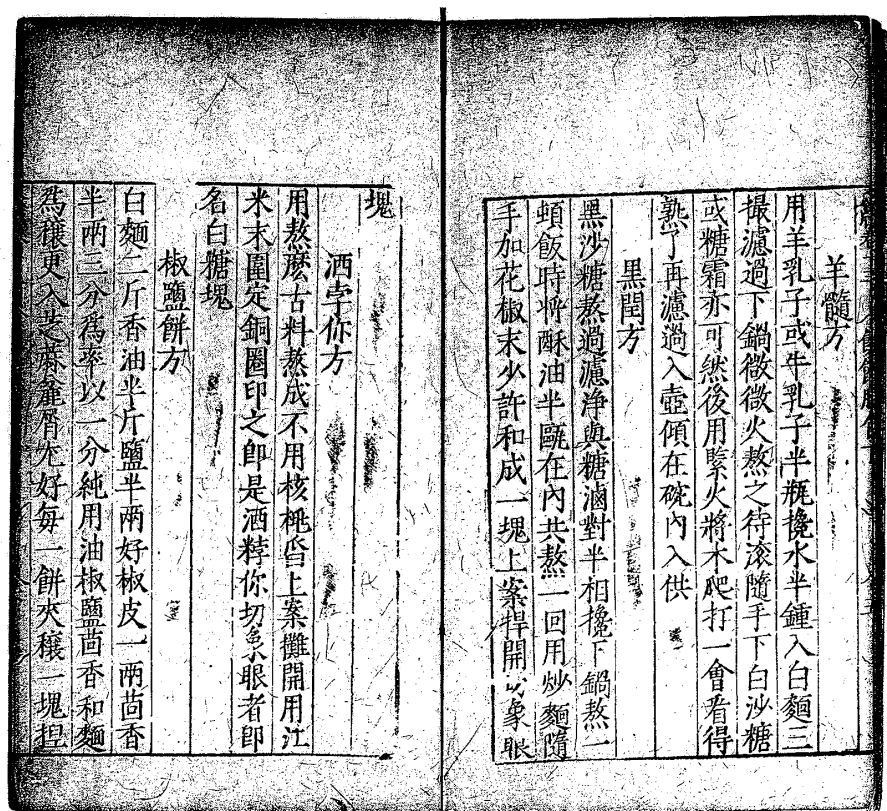 羊髓方
用羊乳子或牛乳子半瓶攙水半鍾入白麵三
撮濾過下鍋微微火熬之待滾隨手下白沙糖
或糖霜亦可然後用緊火將木爬打一會看得
熟了再濾過入壺傾在碗內入供
黑閏方
黑沙糖熬過濾淨與糖滷對半相攙下鍋熬一
頓飯時將酥油半甌在內共熬一回用炒麵隨
手加花椒末少許和成一塊上案捍開切象眼
塊
洒孛你方
用熬麼古料熬成不用核桃舀上案攤開用江
米末圍定銅圈印之即是洒粰你切象眼者即
名白糖塊
椒鹽餅方
白麵二斤香油半斤鹽半兩好椒皮一兩茴香
半兩三分爲率以一分純用油椒鹽茴香和麵
爲穰更入芝麻麄屑尤好每一餅夾穰一塊捏